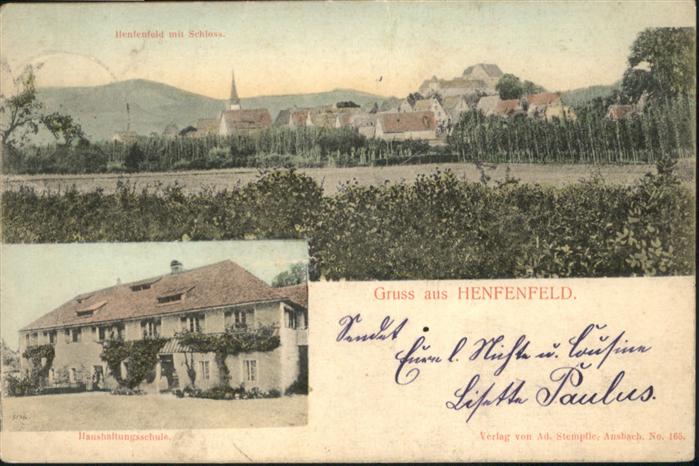 Henfenfeld mit Schloss.
Gruss aus HENFENFELD.
Sendet
Eure l. Nichte u. Cousine
Lisette Paulus.
Haushaltungsschule.
Verlag von Ad. Stempfle, Ansbach. No. 165.